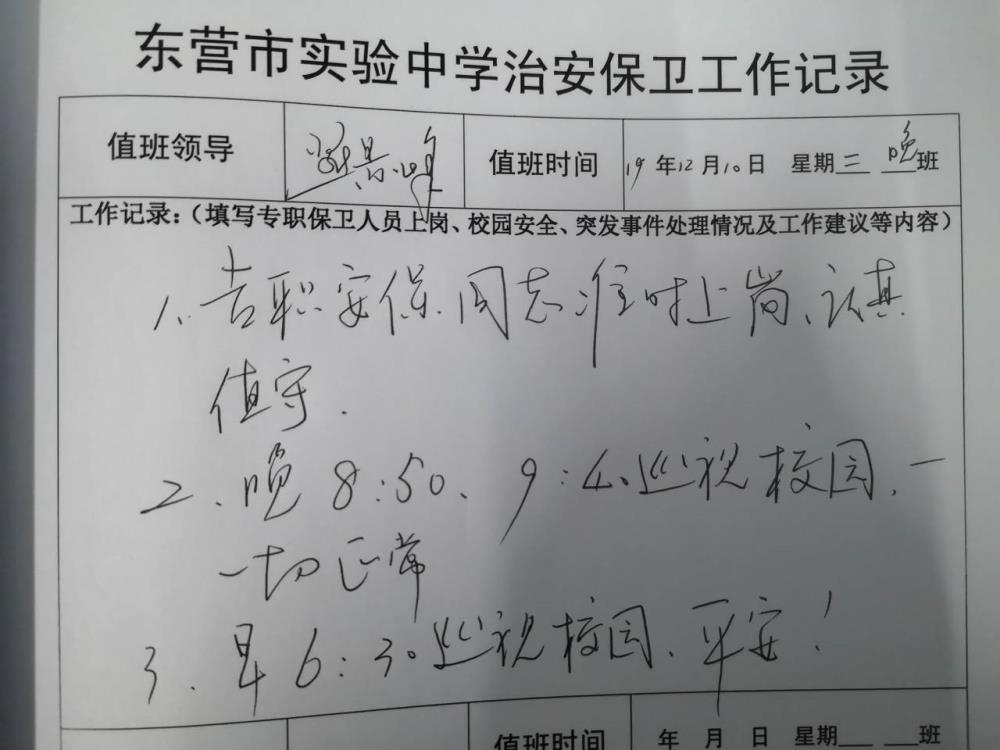 东营市实验中学治安保卫工作记录
值班领导 值班时间 19年12月10日 星期三 晚班
工作记录：（填写专职保卫人员上岗、校园安全、突发事件处理情况及工作建议等内容）
1、专职安保同志准时上岗、认真
值守.
2、晚8:50、9:40巡视校园、一
一切正常
3、早6:30巡视校园、平安！
值班时间 年 月 日 星期 班